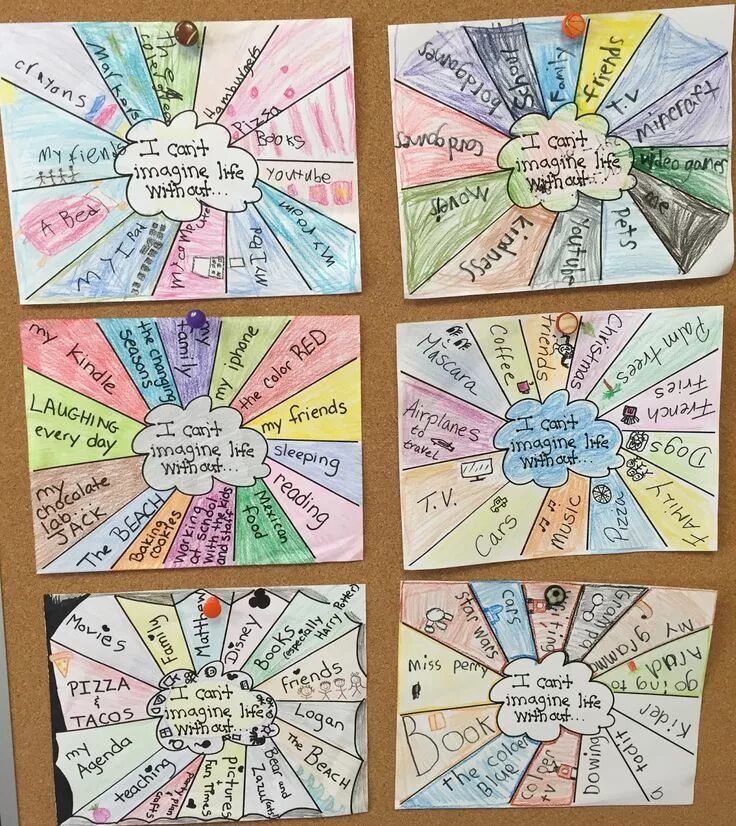 crayons
Markers
The
Hamburgers
Pizza
Books
Youtube
My room
My
My
My I Pad
A Bed
My fiends
I can't
imagine life
without...
bordgames
School
Family
friends
T.V
Mincraft
Video games
me
pets
Youtube
kindness
Cardgames
I can't
imagine life
without...
my Kindle
the changing
seasons
my
family
my iphone
the color RED
my friends
sleeping
reading
Mexican
food
Working
at School
with the kids
and staff
Baking
cookies
The BEACH
my
chocolate
Lab...
JACK
LAUGHING
every day
I can't
imagine life
without...
Mascara
Coffee
friends
Christmas
Palm trees
French
Fries
Dogs
FAMILY
Pizza
music
Cars
T.V.
Airplanes
to
travel
I can't
imagine life
without...
Movies
Family
Matthew
Disney
Books
(especially
HARRY Potter)
friends
Logan
The BEACH
Bear and
Zazu(cats)
pictures
&
fun Times
party plan
crafts
teaching
my
Agenda
PIZZA
&
TACOS
I can't
imagine life
without...
Star wars
cars
Grampa
my
going to
Kider
a
Dowing
the coler
Blue
Book
Miss perry
I can't
imagine life
without...